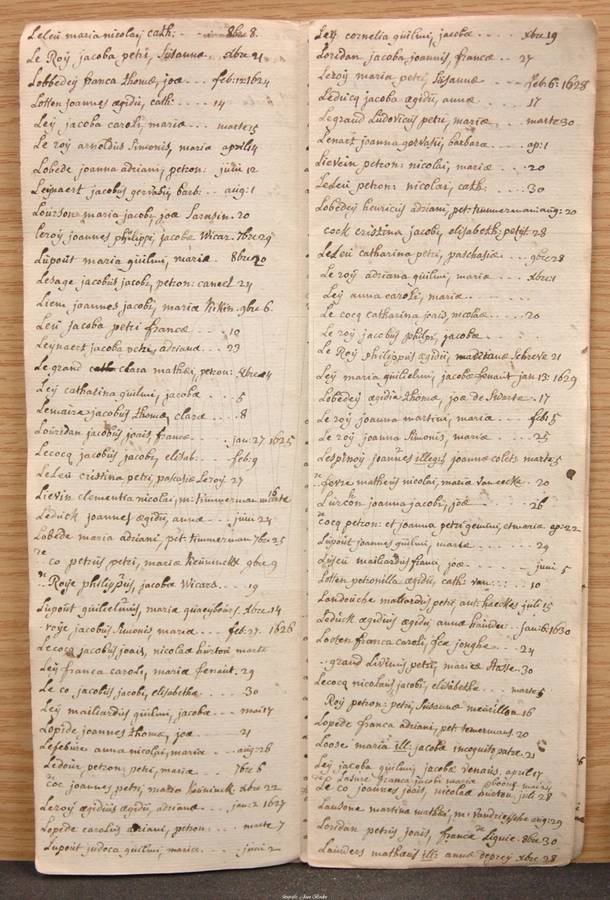 Leleu maria nicolai, cath: 8bre 8.
Le Roÿ jacoba petri, Susanna xbre 21
Lobbedeÿ franca thomæ, joæ feb: 12: 1624
Lotten joannes ægidii, cath: 14
Leÿ jacoba caroli, mariæ marte 15
Le roÿ arnoldus simonis, mariæ april 4
Lobede joanna adriani, petron: junii 12
Leijnaert jacobus gervasii, barb: aug: 1
Lourson maria jacobi, joæ Sarasin. 20
leroÿ joannes philippi, jacobæ Wicar. 7bre 29
Lupout maria guilmi, mariæ 8bre 20
Lesage jacobus jacobi, petron: canel 24
Liem joannes jacobi, mariæ 9bre 6.
Leu jacoba petri francæ 10
Leynaert jacoba petri, adrianæ 23
Le grand clara mathei, petron: xbre 4
Leÿ catharina guilmi, jacobæ 5
Lemaire jacobus thomæ, claræ 8
Louridan jacobus jois, francæ jan: 27 1625
Lecocq jacobus jacobi, elisab: feb: 9
LeLeu cristina petri, pascasiæ Leroÿ 27
Lievin clementia nicolai, m: timmerman 16 marte
Leduck joannes ægidii, annæ junii 24
Lobede maria adriani, pet. timmerman 7bre 25
co petrus petri, mariæ 9bre 9
Roÿe philippus, jacobæ Wicars 19
Lupout guilielmus, mariæ xbre 14
roÿe jacobus simonis, mariæ feb: 27. 1626
Lecocq jacobus jois, nicolaæ hurton marti
Leÿ franca caroli, mariæ fenaut. 29
Le co jacobus jacobi, elisabethæ 30
Leÿ mailiardus guilmi, jacobæ mai 17
Lopide joannes thomæ, joæ 21
Lefebure anna nicolai, mariæ aug: 26
Ledour petron: petri, mariæ 7bre 6
coc joannes petri, mariæ xbre 22
Leroÿ ægidius ægidii, adrianæ jan: 2 1627
Lopide carolus adriani, petron: marte 7
Lupout judoca guilmi, mariæ junii 2
Leÿ cornelia guilmi, jacobæ xbre 19
Loridan jacoba joannis, francæ 27
Leroÿ maria petri, Susannæ feb: 6: 1628
Leducq jacoba ægidii, annæ 17
Legrand Ludovicus petri, mariæ marte 30
Lenart joanna gervasii, barbaræ ap: 1
Lievein petron: nicolai, mariæ 20
LeLeu petron: nicolai, cath: 30
Lobedeÿ henricus adriani, pet: timmerman aug: 20
cock cristina jacobi, elisabeth: petÿt 28
LeLeu catharina petri, paschasiæ 9bre 28
Le roÿ adriana guilmi, mariæ xbre 1
Leÿ anna caroli, mariæ
Le cocq catharina jois, nicolaæ 20
Le roÿ jacobus philpi, jacobæ
Le Roÿ philippus ægidii, 21
Leÿ maria guilielmi, jacobæ fenaut jan 13: 1629
Lobedeÿ ægidia thomæ, joæ de Swarte. 17
Le roÿ joanna martini, mariæ feb: 5
Le roÿ joanna simonis, mariæ 25
Lespinoÿ joannes illegis joannæ colets marte 5
fevre matheus nicolai, mariæ van eecke. 20
Lurcon joanna jacobi, joæ 26
cocq petron: et joanna petri gemini, et mariæ ap: 22
Lupout joannes guilmi, mariæ 29
Lyseu mailiardus franci, joæ junii 5
Lotten petronilla ægidii, cath: van::: 10
Landouche mallardus petri, ant: haeckes julii 15
Leduck ægidius ægidii, annæ jan: 6: 1630
Looten franca caroli, fcæ jonghe 24
grand Livinus petri, mariæ Hasse. 30
Lecocq nicolaus jacobi, elisabethæ marte 5
Roÿ petron: petri, Susannæ meurillon 16
Lopede franca adriani, pet: temermans. 20
Loose maria ill: jacobæ incogniti patre. 21
Leÿ jacoba guilmi jacobæ venaus, april 17
franca jacobi mariæ
Le co joannes jois, nicolaæ hurton juli 28
Lansone martina mathei, m: aug: 29
Loridan petrus jois, francæ de Liquie. 8bre 30
Lauders matheus ill: annæ depreÿ xbre 28